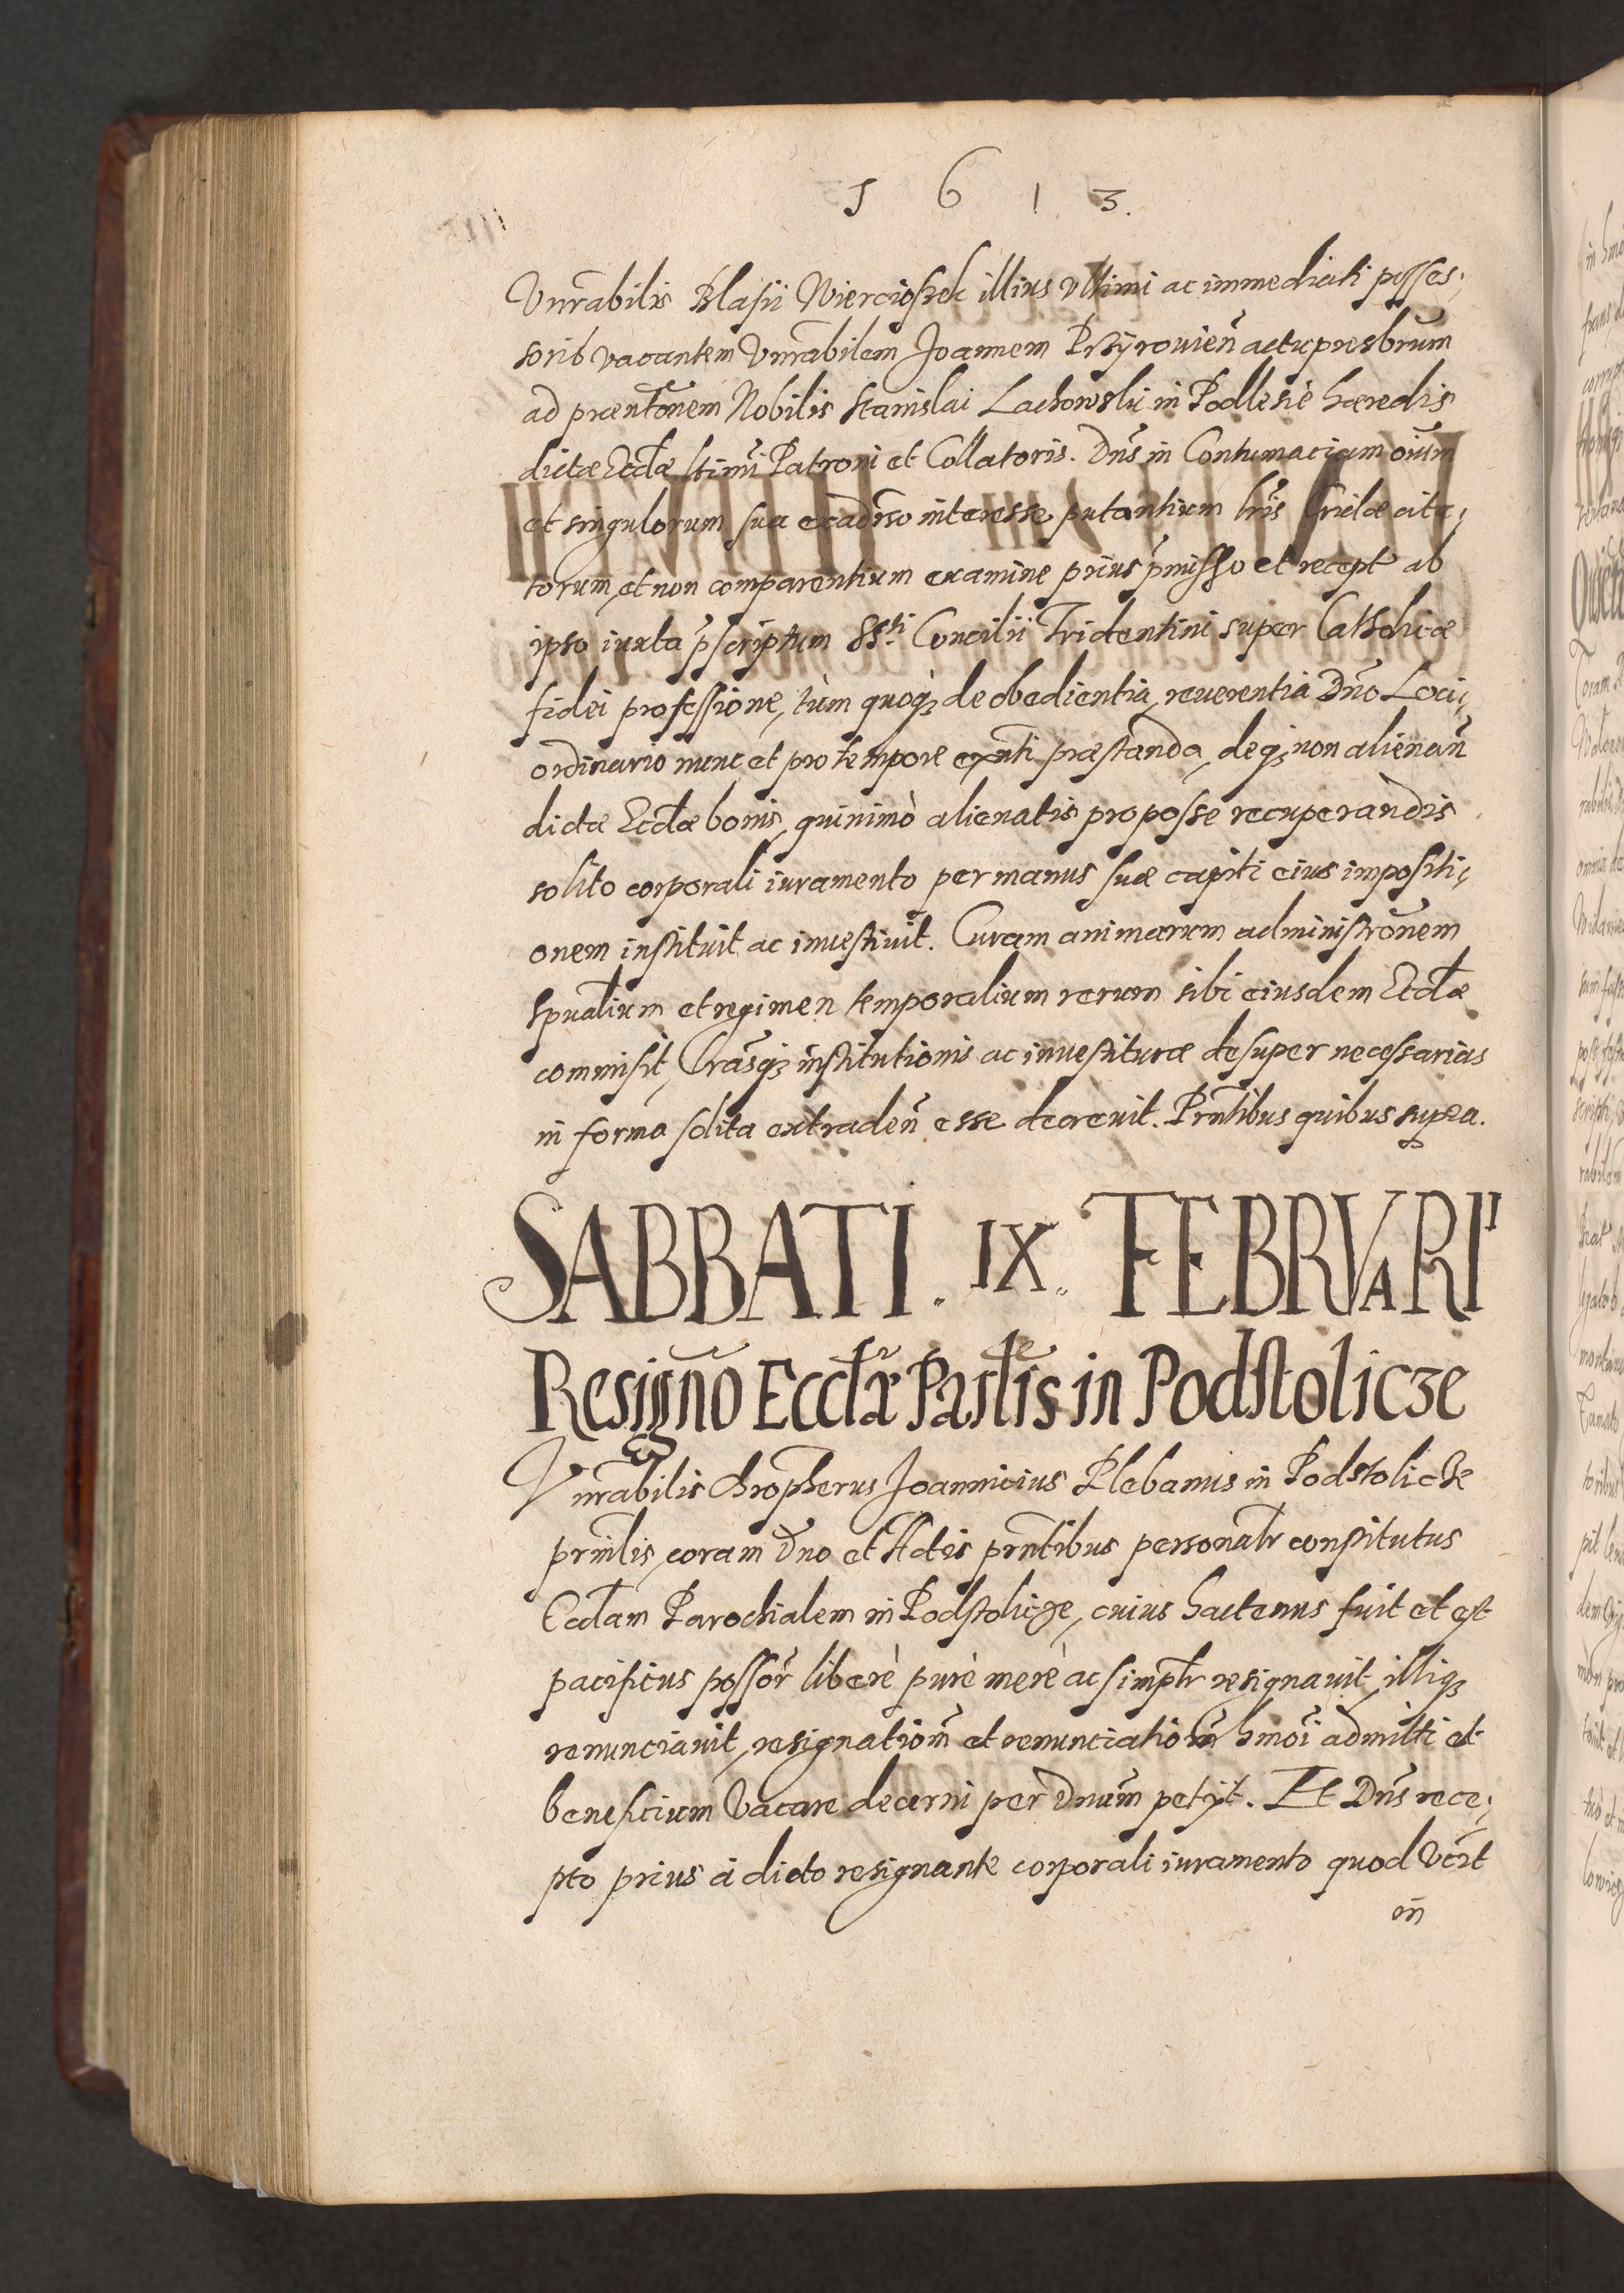 1613.
Vnrabilis Blasii Wierciossek illius vltimi ac immediati posses,
soris vacantem Vnrabilem Joannem Przÿrouien̄ actu presbrum
ad praentōnem Nobilis Stanislai Lachowskii in Podlesie haeredis
dictae Eccłae ltimi Patroni et Collatoris. Dns in Contumaciam oium
et singulorum sua ea de interesse putantium lris Cridae cita,
torum, et non comparentium examine prius pmisso et recept ab
ipso iuxta pscriptum SSti Concilii Tridentini super Catholicae
fidei professione, tùm quoqȝ de obedientia, reuerentia Dno Loci,
ordinario nunc et pro tempore exnti praestanda, deqȝ non alienan̄
dictae Eccłae bonis, quinimò alienatis pro posse recuperandis
solito corporali iuramento per manus suae capiti eius impositi,
onem instituit ac inuestiuit. Curam animarum administrōnem
spualium et regimen temporalium rerum sibi eiusdem Eccłae
commisit, Lrasqȝ institutionis ac inuestiturae desuper necessarias
in forma solita extraden̄ esse decreuit. Prntibus quibus supra.
SABBATI. IX. FEBRVARII
Resigno Eccłae Parlis in Podstolicze
Vnrabilis Chropherus Joannicius Plebanus in Podstolicze
prinlis, coram Dno et Actis prntibus personalr constitutus
Eccłam Parochialem in Podstolicze, cuius hactenus fuit et est
pacificus possor liberè purè merè ac simplr resignauit, illiqȝ
renunciauit, resignatiom et renunciatiom hmoi admitti et
beneficium vacare decerni per Dnum petÿt. Et Dns rece,
pto prius à dicto resignante corporali iuramento quod
in